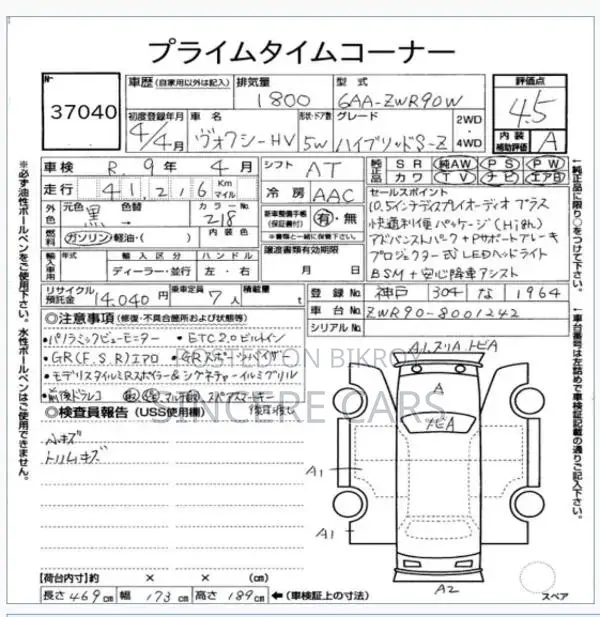 プライムタイムコーナー
No 37040
車歴 (自家用以外は記入) 排気量 1800 型式 6AA-ZWR90W
評価点 4.5
初度登録年月 4/4月 車名 ヴォクシーHV 形状・ドア数 5W グレード ハイブリッドS-Z 2WD・4WD
内装補助評価 A
車検 R.9年 4月 シフト AT
純正品 SR 純AW PS PW
カワ TV ナビ エアB
走行 41,216 Km マイル 冷房 AAC
セールスポイント
10.5インチディスプレイオーディオ プラス
快適利便パッケージ(High)
アドバンストパーク+Pサポートブレーキ
プロジェクター式LEDヘッドライト
BSM+安心降車アシスト
外色 元色 黒 色替 カラーNo. 218
新車整備手帳(保証書付) 有・無
※書類と一緒に保管下さい。
燃料 ガソリン・軽油・( ) 内装色
輸入車用 年式 輸入区分 ハンドル
ディーラー・並行 左・右
譲渡書類有効期限
月 日
リサイクル預託金 14,040円 乗車定員 7人 積載量 t
登録No. 神戸 304 な 1964
車台No. ZWR90-8001242
シリアルNo.
◎注意事項 (修復・不具合箇所および状態等)
・パノラミックビューモニター ・ETC2.0ビルトイン
・GR(F.S.R)エアロ ・GRスポーツバイザー
・モデリスタイルミRスポイラー&シグネチャーイルミグリル
・前後ドラレコ スペアスマートキー
◎検査員報告 (USS使用欄)
小キズ
トリムキズ
A
ナビA
A1
A1
A2
スペア
【荷台内寸】約 × × (cm)
長さ 469cm 幅 173cm 高さ 189cm ←(車検証上の寸法)
※必ず油性ボールペンをご使用下さい。水性ボールペンはご使用できません。
←純正品に限り○をつけて下さい。
←車台番号は左詰めで車検証記載の通りご記入下さい。
POSTED ON BIKROY
SINCERE CARS